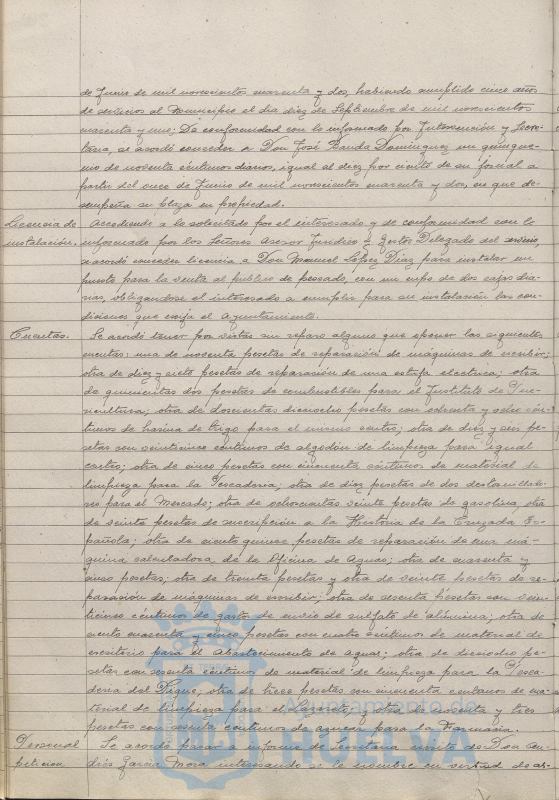 de Junio de mil novecientos cuarenta y dos, habiendo cumplido cinco años
de servicios al Municipio el dia diez de Septiembre de mil novecientos
cuarenta y uno; De conformidad con lo informado por Intervención y Secre-
taria, se acordó conceder a Don José Banda Dominguez un quinque-
nio de noventa céntimos diarios, igual al diez por ciento de su jornal a
partir del once de Junio de mil novecientos cuarenta y dos, en que de-
sempeña su plaza en propiedad.
Licencia de Accediendo a lo solicitado por el interesado y de conformidad con lo
instalación. informado por los Señores Asesor Juridico y Gestor Delegado del servicio,
se acordó conceder licencia a Don Manuel López Diaz para instalar un
puesto para la venta al publico de pescado, con un cupo de dos cajas dia-
rias, obligandose el interesado a cumplir para su instalación las con-
diciones que exija el Ayuntamiento.
Cuentas. Se acordó tener por vistas sin reparo alguno que oponer las siguientes
cuentas: una de noventa pesetas de reparación de máquinas de escribir;
otra de diez y siete pesetas de reparación de una estufa electrica; otra
de quinientas dos pesetas de combustibles para el Instituto de Pue-
ricultura; otra de doscientas dieciocho pesetas con ochenta y ocho cén-
timos de harina de trigo para el mismo centro; otra de diez y seis pe-
setas con veinticinco céntimos de algodón de limpieza para igual
centro; otra de cinco pesetas con cincuenta céntimos de material de
limpieza para la Pescaderia; otra de diez pesetas de dos
para el Mercado; otra de ochocientas veinte pesetas de gasolina; otra
de veinte pesetas de suscripción a la Historia de la Cruzada Es-
pañola; otra de ciento quince pesetas de reparación de una má-
quina calculadora de la Oficina de Aguas; otra de cuarenta y
cinco pesetas; otra de treinta pesetas y otra de veinte pesetas de re-
paración de máquinas de escribir; otra de sesenta pesetas con vein-
ticinco céntimos de gastos de envio de sulfato de alúmina; otra de
ciento cuarenta y cinco pesetas con cuatro céntimos de material de
escritorio para el Abastecimiento de Aguas; otra de dieciocho pe-
setas con sesenta céntimos de material de limpieza para la Pesca-
deria del Pique; otra de trece pesetas con cincuenta céntimos de ma-
terial de limpieza para el Lazareto; y otra de cuarenta y tres
pesetas con céntimos de azucar para la Farmacia.
Personal Se acordó pasar a informe de Secretaria escrito de Don An-
peticion drés Garcia Mora interesando se le nombre en virtud de
Ayuntamiento de
HUELVA